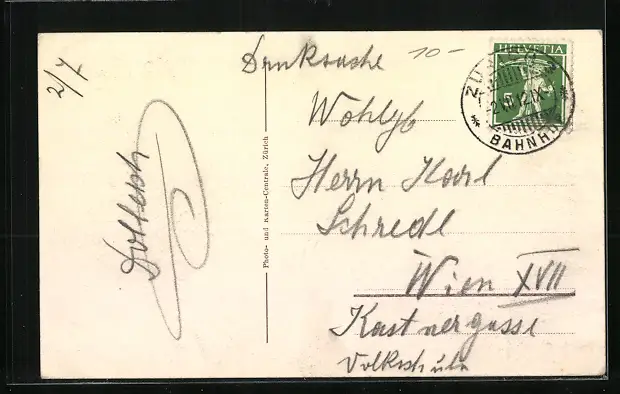 2/7
Drucksache 10-
HELVETIA
5
BAHNH
Wohlgb
Herrn Karl
Schredl
Wien XVII
Kastnergasse
Volksschule
Photo- und Karten-Centrale, Zürich